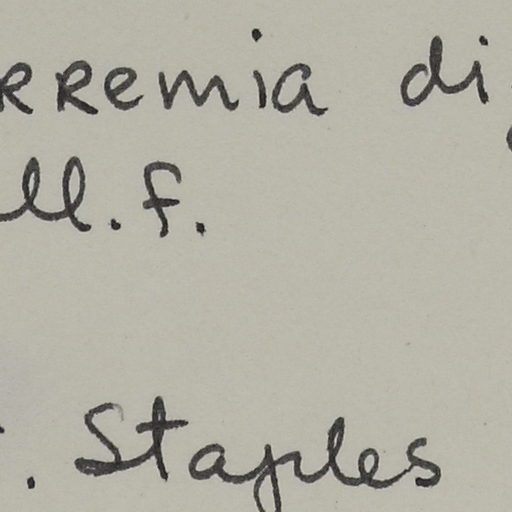 rremia di
ll.f.
. Staples